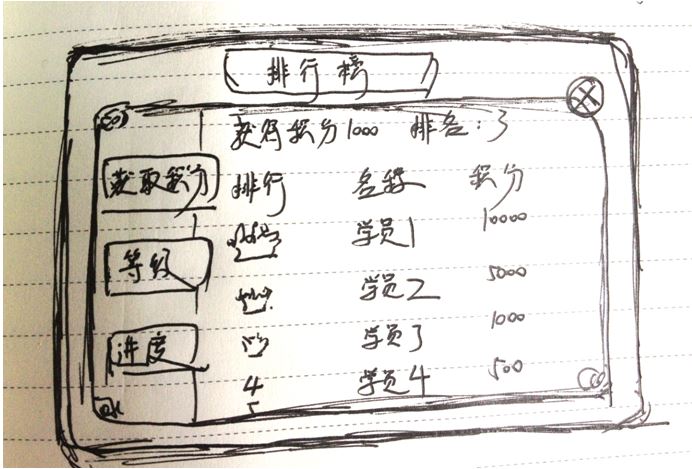 排行榜
获得积分1000 排名：3
获取积分
排行 名称 积分
学员1 10000
等级
学员2 5000
学员3 1000
进度
4 学员4 500
5